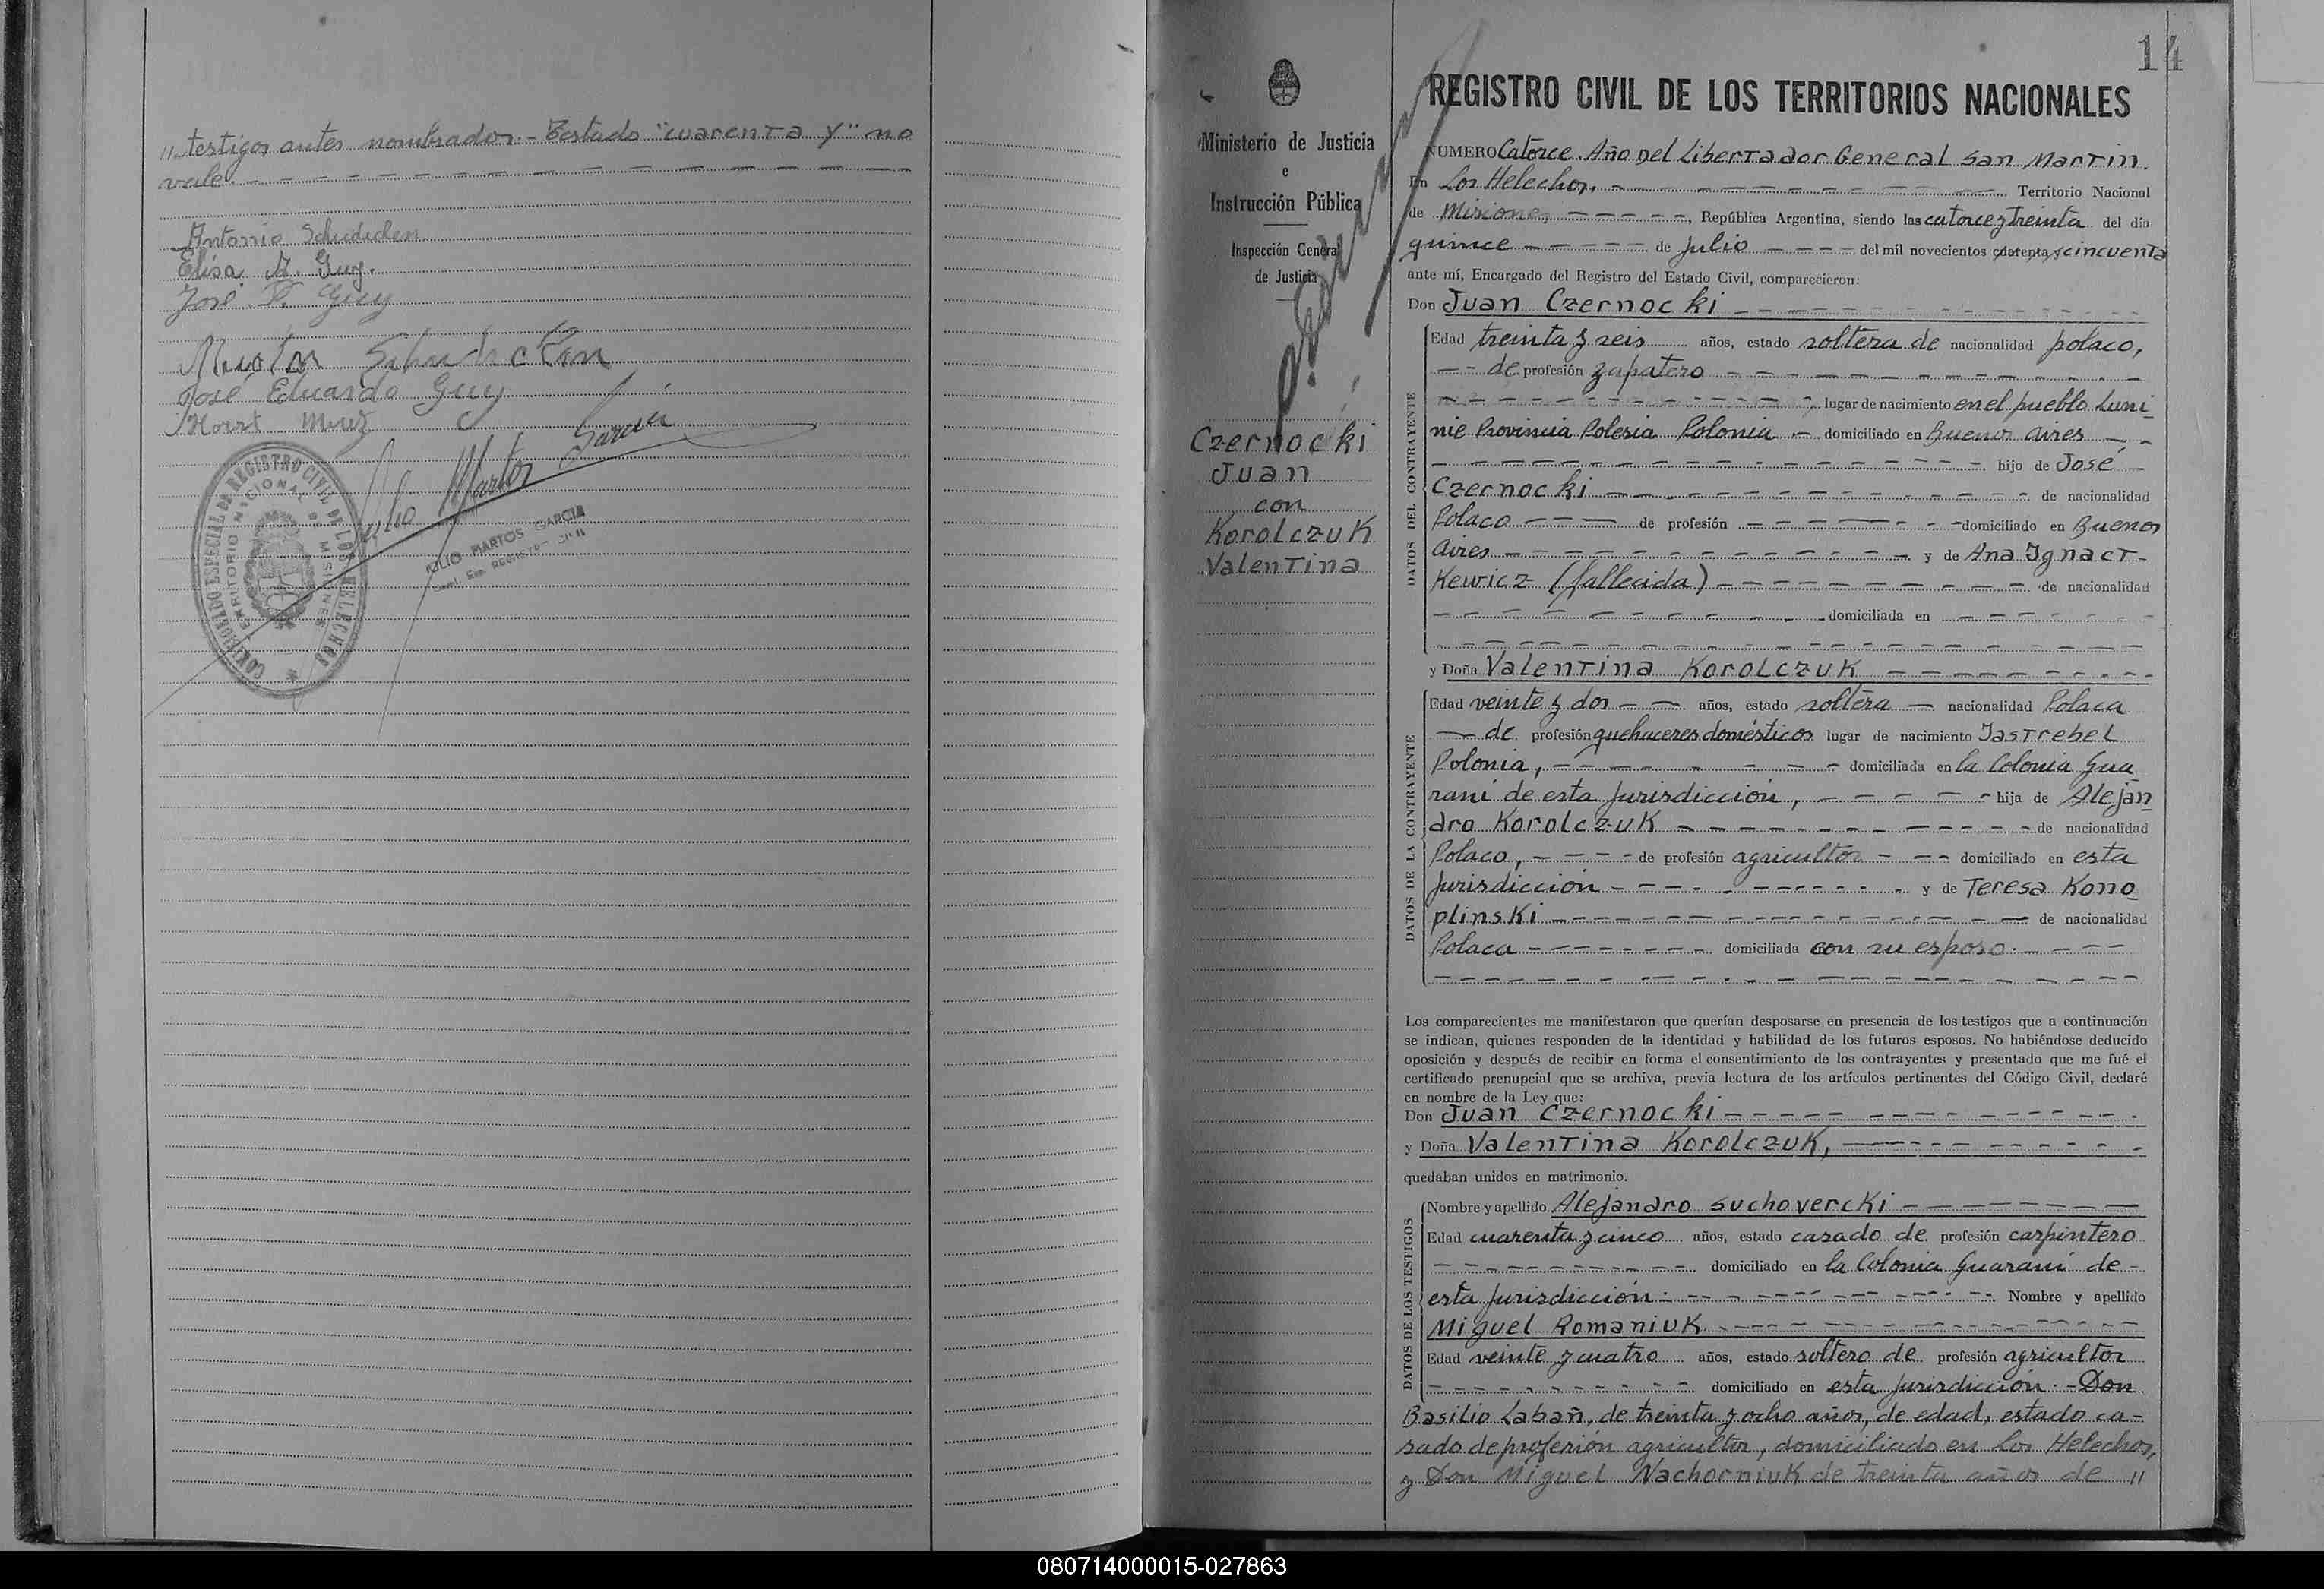 //testigos antes nombrados.- Testado "cuarenta y" no
vale.
Antonio
Elisa M. Guy.
José F. Guy
José Eduardo Guy
Horst
Julio Martos Garcia
COMISIONADO ESPECIAL DE REGISTRO CIVIL DE LOS HELECHOS
TERRITORIO NACIONAL DE MISIONES
JULIO MARTOS GARCIA
REGISTRO CIVIL
14
Ministerio de Justicia
e
Instrucción Pública
Inspección General
de Justicia
Czernocki
Juan
con
Korolczuk
Valentina
REGISTRO CIVIL DE LOS TERRITORIOS NACIONALES
NUMERO Catorce. Año del Libertador General San Martin.
En Los Helechos, Territorio Nacional
de Misiones, República Argentina, siendo las catorce y treinta del día
quince de Julio del mil novecientos cuarenta y cincuenta
ante mí, Encargado del Registro del Estado Civil, comparecieron:
Don Juan Czernocki
DATOS DEL CONTRAYENTE
Edad treinta y seis años, estado soltero de nacionalidad polaco,
de profesión zapatero
lugar de nacimiento en el pueblo Luni-
nie Provincia Polesia Polonia domiciliado en Buenos Aires
hijo de José
Czernocki de nacionalidad
Polaco de profesión domiciliado en Buenos
Aires y de Ana Ignact-
Kewicz (fallecida) de nacionalidad
domiciliada en
y Doña Valentina Korolczuk
DATOS DE LA CONTRAYENTE
Edad veinte y dos años, estado soltera nacionalidad Polaca
de profesión quehaceres domésticos lugar de nacimiento Jastrebel
Polonia, domiciliada en la Colonia Gua
raní de esta Jurisdicción, hija de Alejan
dro Korolczuk de nacionalidad
Polaco, de profesión agricultor domiciliado en esta
Jurisdicción y de Teresa Kono
plinski de nacionalidad
Polaca domiciliada con su esposo.
Los comparecientes me manifestaron que querían desposarse en presencia de los testigos que a continuación
se indican, quienes responden de la identidad y habilidad de los futuros esposos. No habiéndose deducido
oposición y después de recibir en forma el consentimiento de los contrayentes y presentado que me fué el
certificado prenupcial que se archiva, previa lectura de los artículos pertinentes del Código Civil, declaré
en nombre de la Ley que:
Don Juan Czernocki
y Doña Valentina Korolczuk,
quedaban unidos en matrimonio.
DATOS DE LOS TESTIGOS
Nombre y apellido Alejandro Suchovercki
Edad cuarenta y cinco años, estado casado de profesión carpintero
domiciliado en la Colonia Guaraní de
esta Jurisdicción. Nombre y apellido
Miguel Romaniuk
Edad veinte y cuatro años, estado soltero de profesión agricultor
domiciliado en esta Jurisdicción. - Don
Basilio Labañ, de treinta y ocho años, de edad, estado ca-
sado de profesión agricultor, domiciliado en Los Helechos,
y Don Miguel Nachorniuk de treinta años de //
080714000015-027863